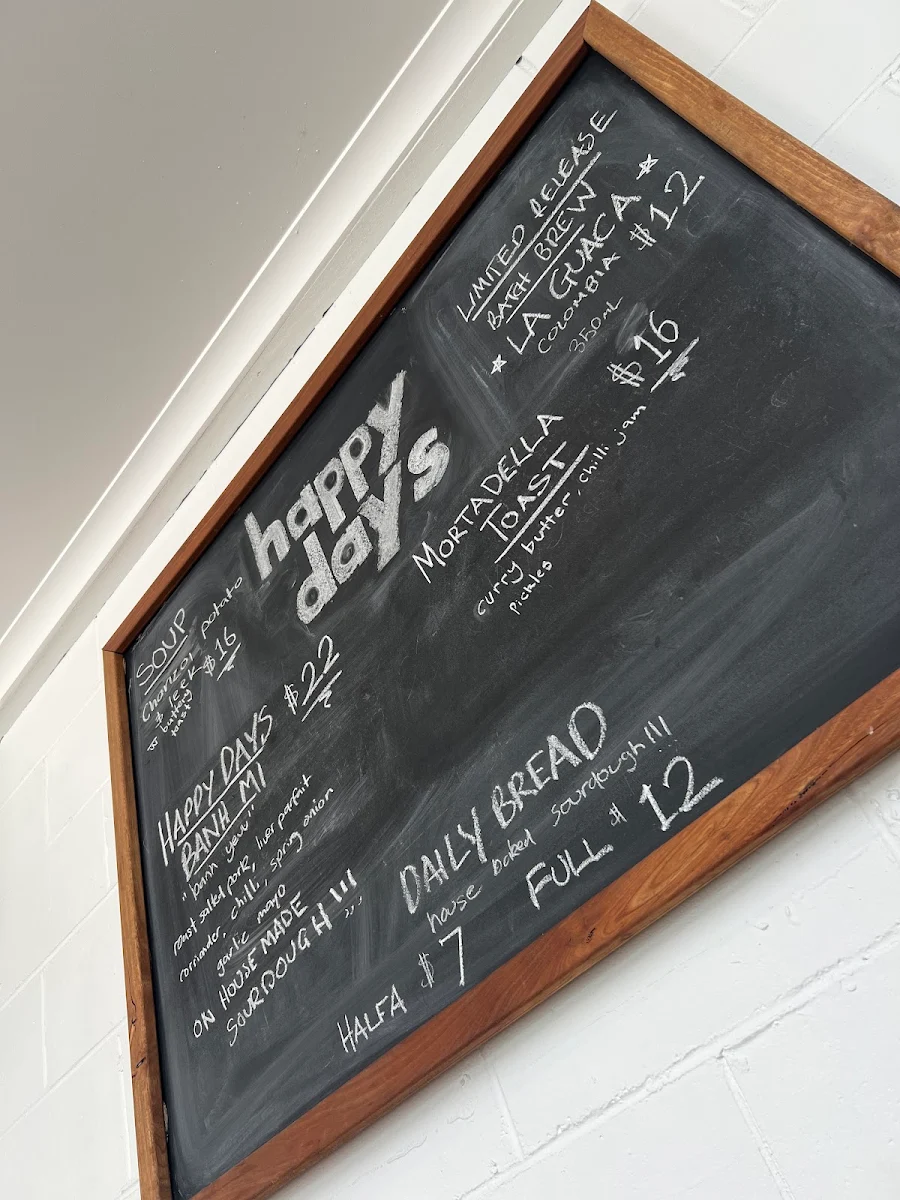 happy
days
SOUP
Chorizo, potato
& leek
w buttery
toast
$16
HAPPY DAYS
BANH MI
$22
"banh yew"
roast salted pork, liver parfait
corriander, chilli, spring onion
garlic mayo
ON HOUSE MADE
SOURDOUGH!!!
LIMITED RELEASE
BATCH BREW
LA GUACA
COLOMBIA
350mL
$12
MORTADELLA
TOAST
$16
curry butter, chilli jam
pickles
DAILY BREAD
house baked sourdough!!!
HALFA $7 FULL $12